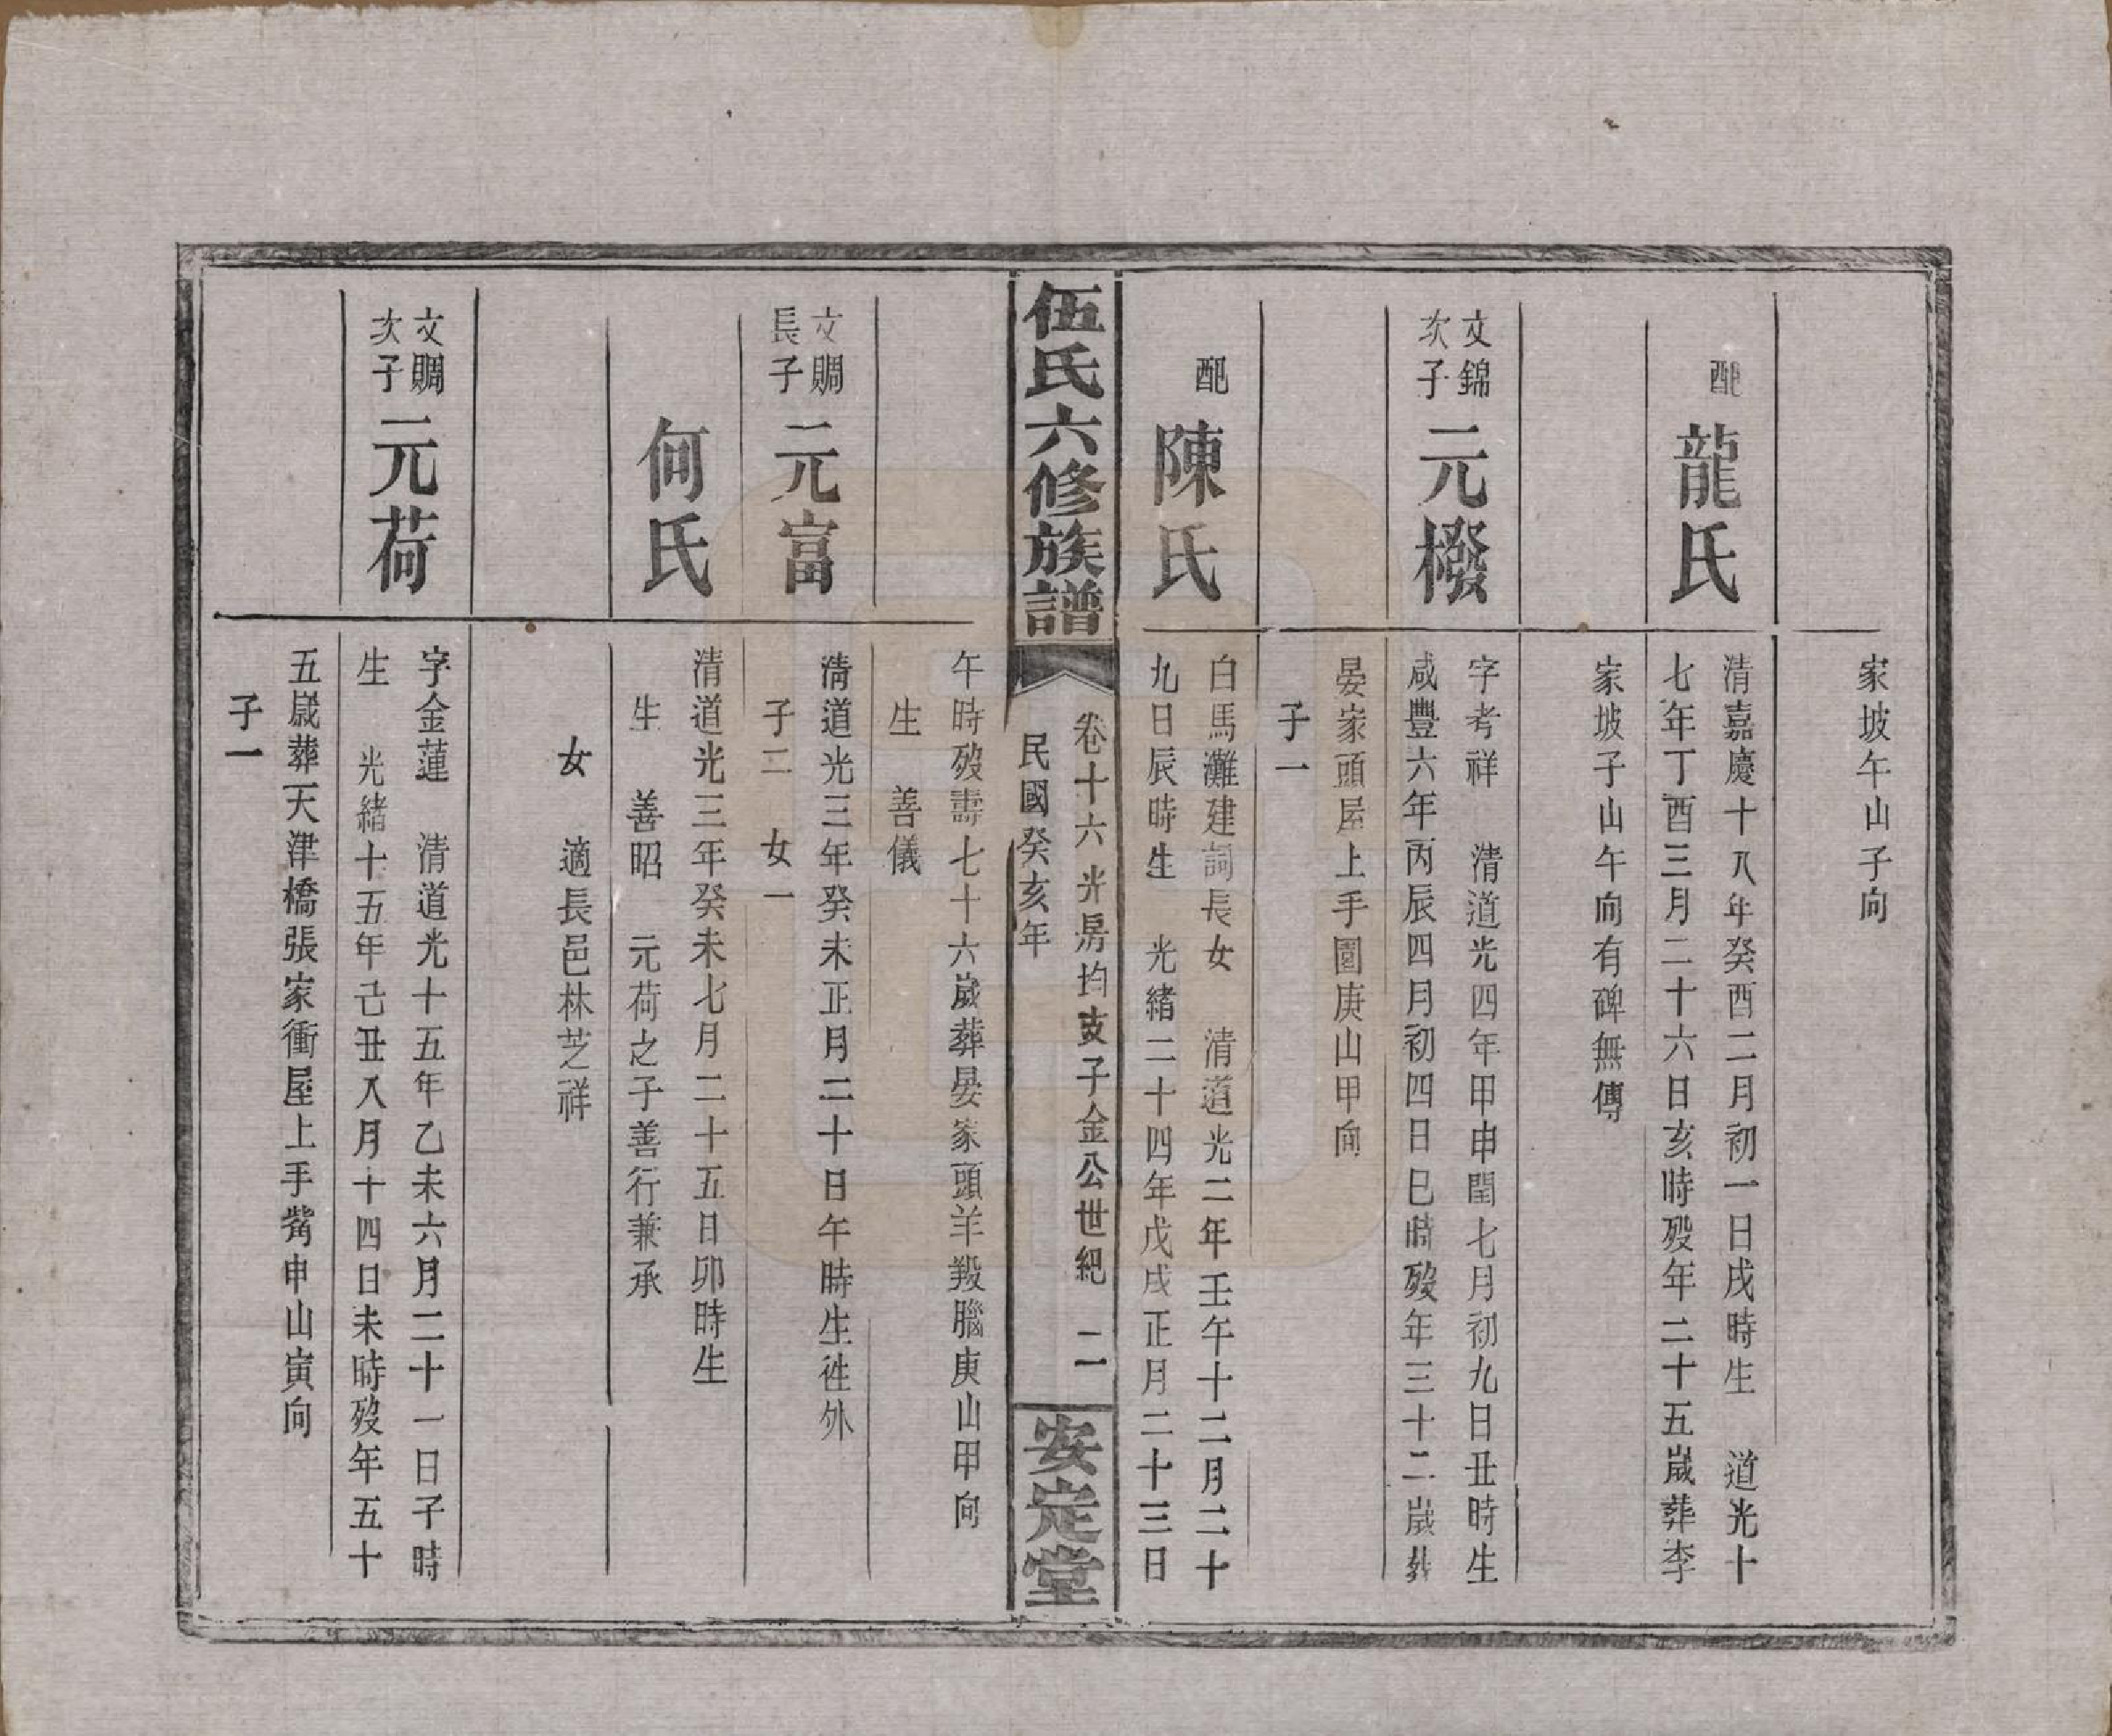 家坡午山子向
配
龍氏
清嘉慶十八年癸酉二月初一日戌時生　道光十
七年丁酉三月二十六日亥時歿年二十五歲葬李
家坡子山午向有碑無傳
文錦
次子
元橃
字考祥　清道光四年甲申閏七月初九日丑時生
咸豐六年丙辰四月初四日巳時歿年三十二歲葬
晏家頭屋上手園庚山甲向
子一
配
陳氏
白馬灘建詞長女　清道光二年壬午十二月二十
九日辰時生　光緒二十四年戊戌正月二十三日
伍氏六修族譜
卷十六　光房均支子金公世紀　二
民國癸亥年
安定堂
午時歿壽七十六歲葬晏家頭羊羖腦庚山甲向
生　善儀
文賙
長子
元富
清道光三年癸未正月二十日午時生徃外
子二　女一
何氏
清道光三年癸未七月二十五日卯時生
生　善昭　元荷之子善行兼承
女　適長邑林芝祥
文賙
次子
元荷
字金蓮　清道光十五年乙未六月二十一日子時
生　光緒十五年己丑八月十四日未時歿年五十
五歲葬天津橋張家衝屋上手觜申山寅向
子一